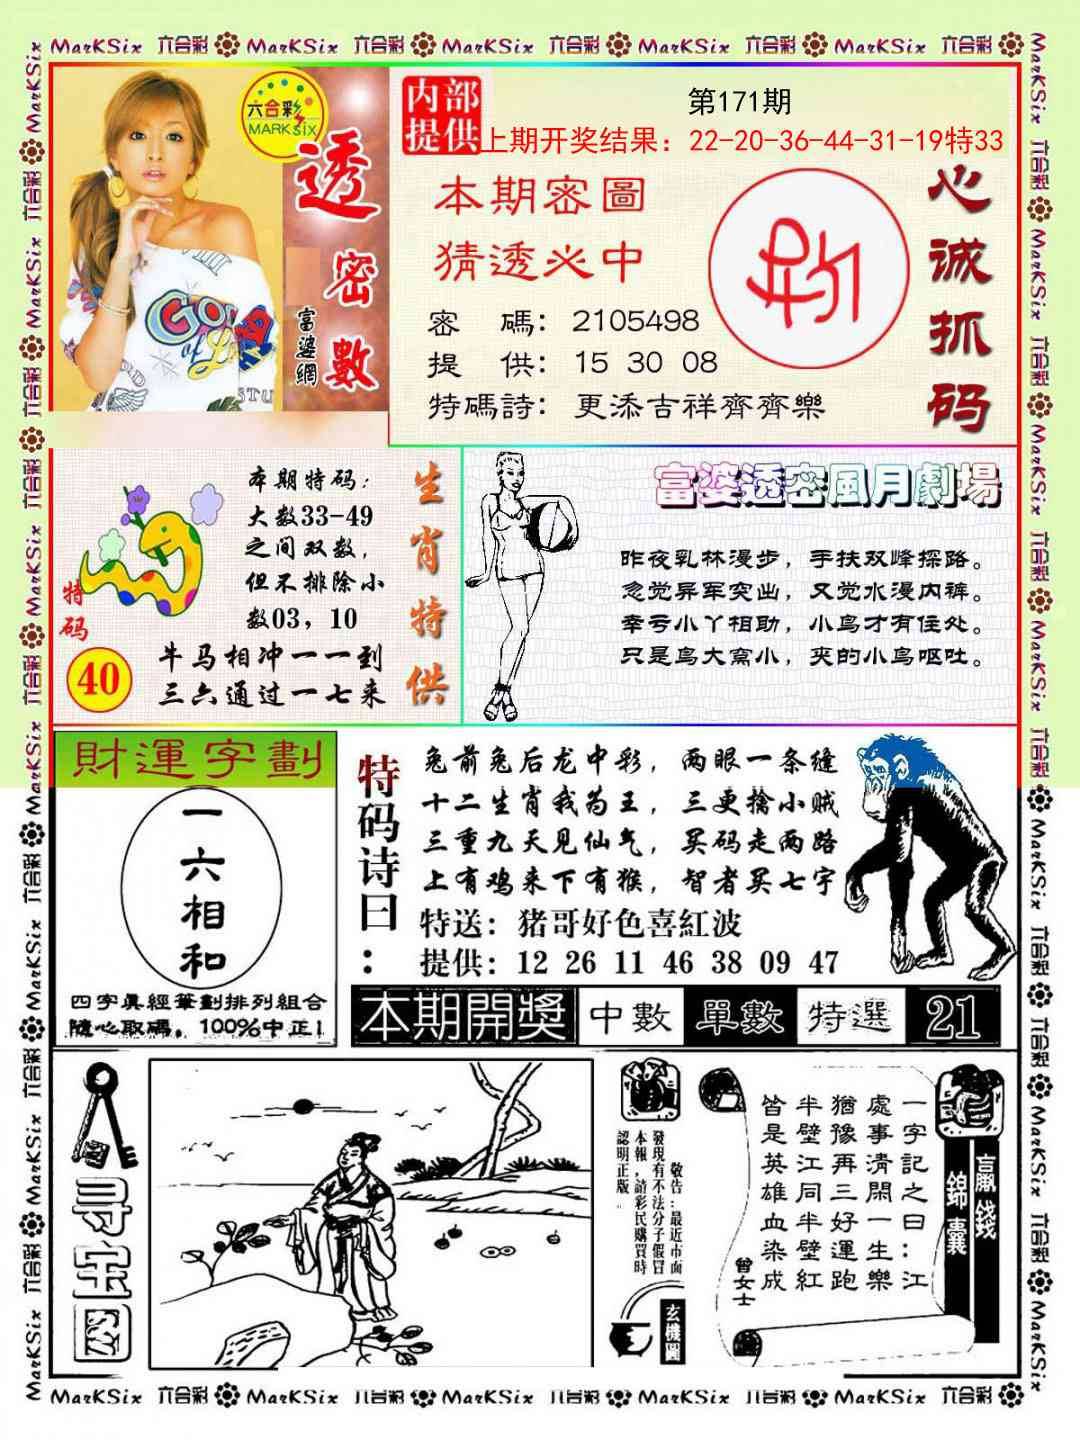 MarKSix 六合彩 MarKSix 六合彩 MarKSix 六合彩 MarKSix 六合彩 MarKSix 六合彩
六合彩
MARK SIX
透密數
富婆網
内部
提供
第171期
上期开奖结果：22-20-36-44-31-19特33
本期密圖
猜透必中
密 碼：2105498
提 供：15 30 08
特碼詩：更添吉祥齊齊樂
心誠抓码
GOOD
本期特码：
大数33-49
之间双数，
但不排除小
数03，10
特码
40
牛马相冲一一到
三六通过一七来
生肖特供
富婆透密風月劇場
昨夜乳林漫步，手扶双峰探路。
忽觉异军突出，又觉水漫内裤。
幸亏小丫相助，小鸟才有住处。
只是鸟大窝小，夹的小鸟呕吐。
財運字劃
一六相和
四字真經筆劃排列組合
隨心取碼，100%中正！
特码诗曰：
兔前兔后龙中彩，两眼一条缝
十二生肖我为王，三更擒小贼
三重九天见仙气，买码走两路
上有鸡来下有猴，智者买七字
特送：猪哥好色喜紅波
提供：12 26 11 46 38 09 47
本期開獎 中數 單數 特選 21
寻宝图
敬告：最近市面
發現有不法分子假冒
本報，請彩民購買時
認明正版。
玄機圖
一字記之曰：江
處事清閑一生樂
猶豫再三好運跑
半壁江同半壁紅
皆是英雄血染成
曾女士
贏錢
錦囊
MarKSix 六合彩 MarKSix 六合彩 MarKSix 六合彩 MarKSix 六合彩 MarKSix 六合彩